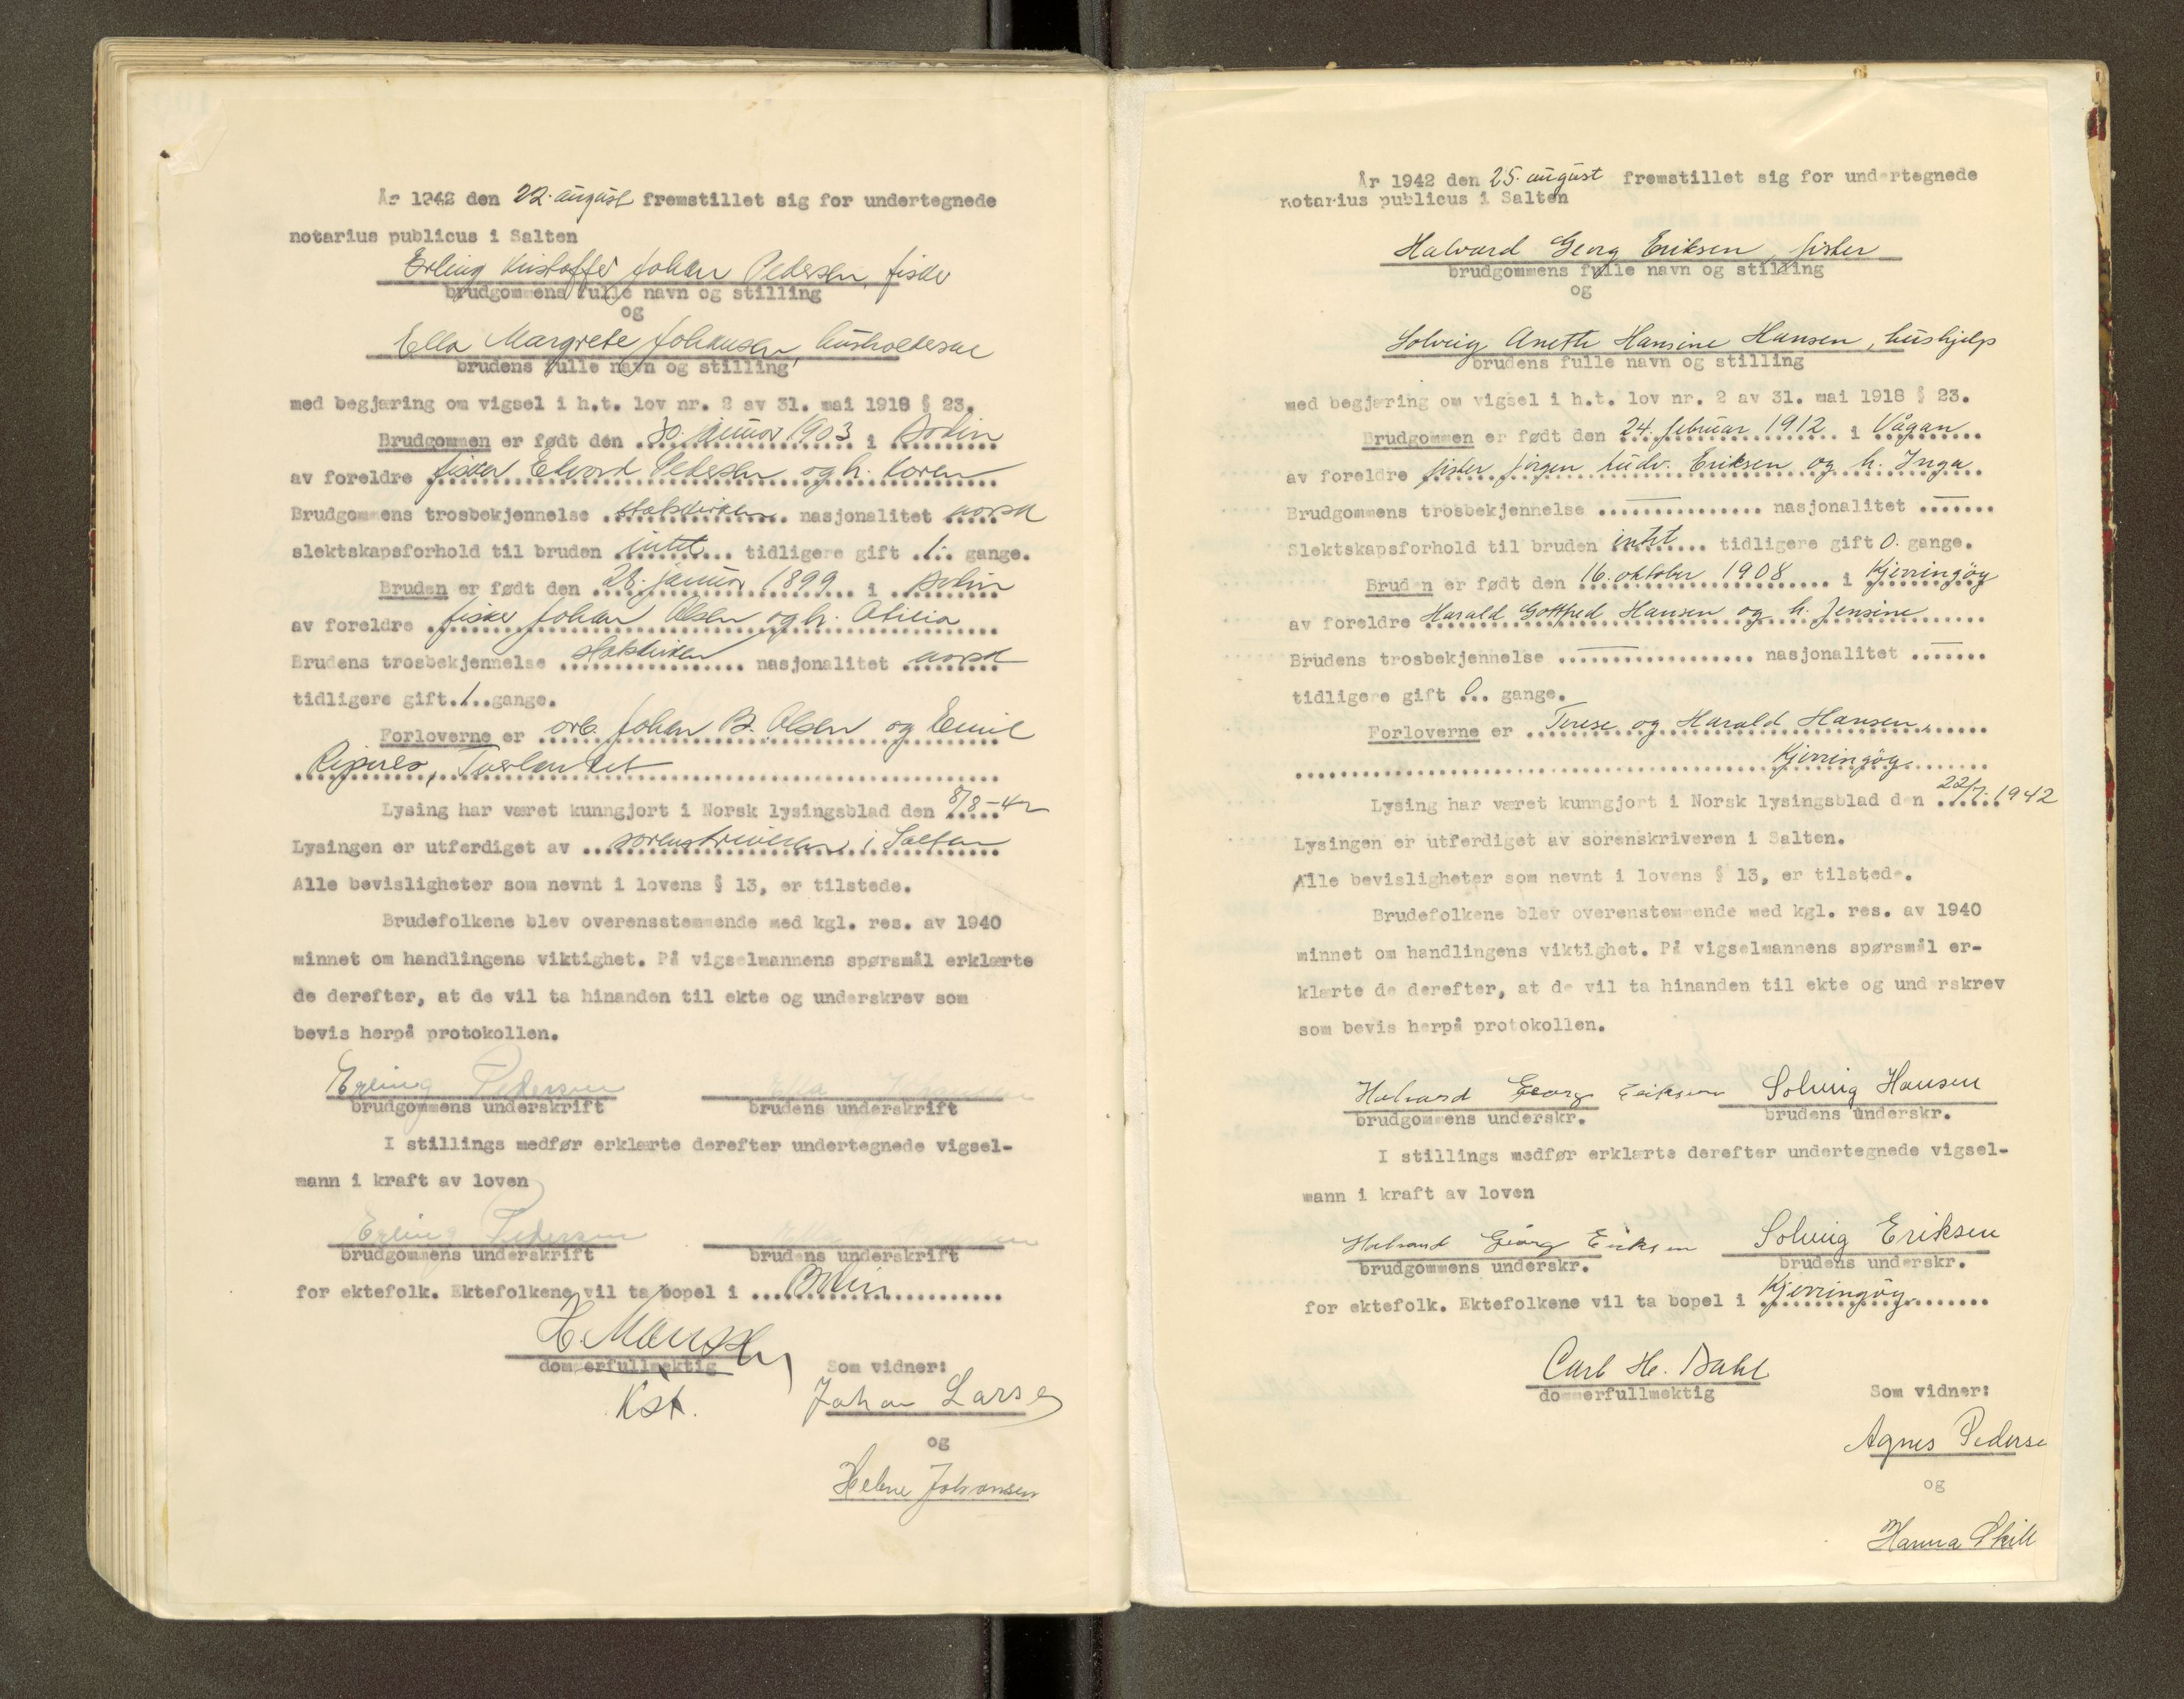 År 1942 den 22. august fremstillet sig for undertegnede
notarius publicus i Salten
Erling Kristoffer Johan Pedersen, fisker
brudgommens fulle navn og stilling
og
Ella Margrete Johansen, husholderske
brudens fulle navn og stilling
med begjæring om vigsel i h.t. lov nr. 2 av 31. mai 1918 § 23.
Brudgommen er født den 30. januar 1903 i Bodin
av foreldre fisker Edvard Pedersen og h. Karen
Brudgommens trosbekjennelse statskirken nasjonalitet norsk
slektskapsforhold til bruden intet tidligere gift 1. gange.
Bruden er født den 28. januar 1899 i Bodin
av foreldre fisker Johan Olsen og h. Otilia
Brudens trosbekjennelse statskirken nasjonalitet norsk
tidligere gift 1 gange.
Forloverne er arb. Johan B. Olsen og Emil
Tverlandet
Lysing har været kunngjort i Norsk lysingsblad den 8/8-42
Lysingen er utferdiget av sorenskriveren i Salten
Alle bevisligheter som nevnt i lovens § 13, er tilstede.
Brudefolkene blev overensstemmende med kgl. res. av 1940
minnet om handlingens viktighet. På vigselmannens spørsmål erklærte
de derefter, at de vil ta hinanden til ekte og underskrev som
bevis herpå protokollen.
Erling Pedersen Ella Johansen
brudgommens underskrift brudens underskrift
I stillings medfør erklærte derefter undertegnede vigsel-
mann i kraft av loven
Erling Pedersen Ella Pedersen
brudgommens underskrift brudens underskrift
for ektefolk. Ektefolkene vil ta bopel i Bodin
dommerfullmektig Som vidner:
Kst. Johan Larsen
og
Helene Johansen
År 1942 den 25. august fremstillet sig for undertegnede
notarius publicus i Salten
Halvard Georg Eriksen, fisker
brudgommens fulle navn og stilling
og
Solveig Anette Hansine Hansen, hushjelp
brudens fulle navn og stilling
med begjæring om vigsel i h.t. lov nr. 2 av 31. mai 1918 § 23.
Brudgommen er født den 24. februar 1912 i Vågan
av foreldre fisker Jørgen Ludv. Eriksen og h. Inga
Brudgommens trosbekjennelse — nasjonalitet —
Slektskapsforhold til bruden intet tidligere gift 0. gange.
Bruden er født den 16. oktober 1908 i Kjerringøy
av foreldre Harald Gottfred Hansen og h. Jensine
Brudens trosbekjennelse — nasjonalitet
tidligere gift 0 gange.
Forloverne er Terese og Harald Hansen,
Kjerringøy
Lysing har været kunngjort i Norsk lysingsblad den 22/7.1942
Lysingen er utferdiget av sorenskriveren i Salten.
Alle bevisligheter som nevnt i lovens § 13, er tilstede.
Brudefolkene blev overenstemmende med kgl. res. av 1940
minnet om handlingens viktighet. På vigselmannens spørsmål er-
klærte de derefter, at de vil ta hinanden til ekte og underskrev
som bevis herpå protokollen.
Halvard Georg Eriksen Solveig Hansen
brudgommens underskr. brudens underskr.
I stillings medfør erklærte derefter undertegnede vigsel-
mann i kraft av loven
Halvard Georg Eriksen Solveig Eriksen
brudgommens underskr. brudens underskr.
for ektefolk. Ektefolkene vil ta bopel i Kjerringøy
Carl H. Dahl
dommerfullmektig Som vidner:
Agnes Pederse
og
Hanna Skill